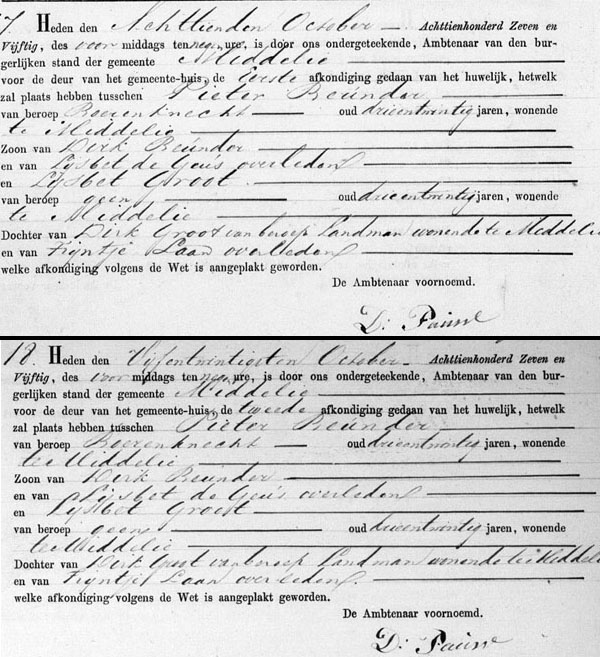 17. Heden den Achttienden October Achttienhonderd Zeven en
Vijftig, des voor middags ten negen ure, is door ons ondergeteekende, Ambtenaar van den bur-
gerlijken stand der gemeente Middelie
voor de deur van het gemeente-huis, de Eerste afkondiging gedaan van het huwelijk, hetwelk
zal plaats hebben tusschen Pieter Beúnder
van beroep Boerenknecht oud drieentwintig jaren, wonende
te Middelie
Zoon van Dirk Beúnder
en van Lijsbet de Geús overleden
en Lijsbet Groot
van beroep geen oud drieentwintig jaren, wonende
te Middelie
Dochter van Dirk Groot van beroep Landman wonende te Middelie
en van Trijntje Laan overleden
welke afkondiging volgens de Wet is aangeplakt geworden.
De Ambtenaar voornoemd.
D: Pauw
18. Heden den Vijfentwintigsten October Achttienhonderd Zeven en
Vijftig, des voor middags ten negen ure, is door ons ondergeteekende, Ambtenaar van den bur-
gerlijken stand der gemeente Middelie
voor de deur van het gemeente-huis, de tweede afkondiging gedaan van het huwelijk, hetwelk
zal plaats hebben tusschen Pieter Beúnder
van beroep Boerenknecht oud drieentwintig jaren, wonende
te Middelie
Zoon van Dirk Beunder
en van Lijsbet de Geús overleden
en Lijsbet Groot
van beroep geen oud drieentwintig jaren, wonende
te Middelie
Dochter van Dirk Groot van beroep Landman wonende te Middelie
en van Trijntje Laan overleden.
welke afkondiging volgens de Wet is aangeplakt geworden.
De Ambtenaar voornoemd.
D: Pauw